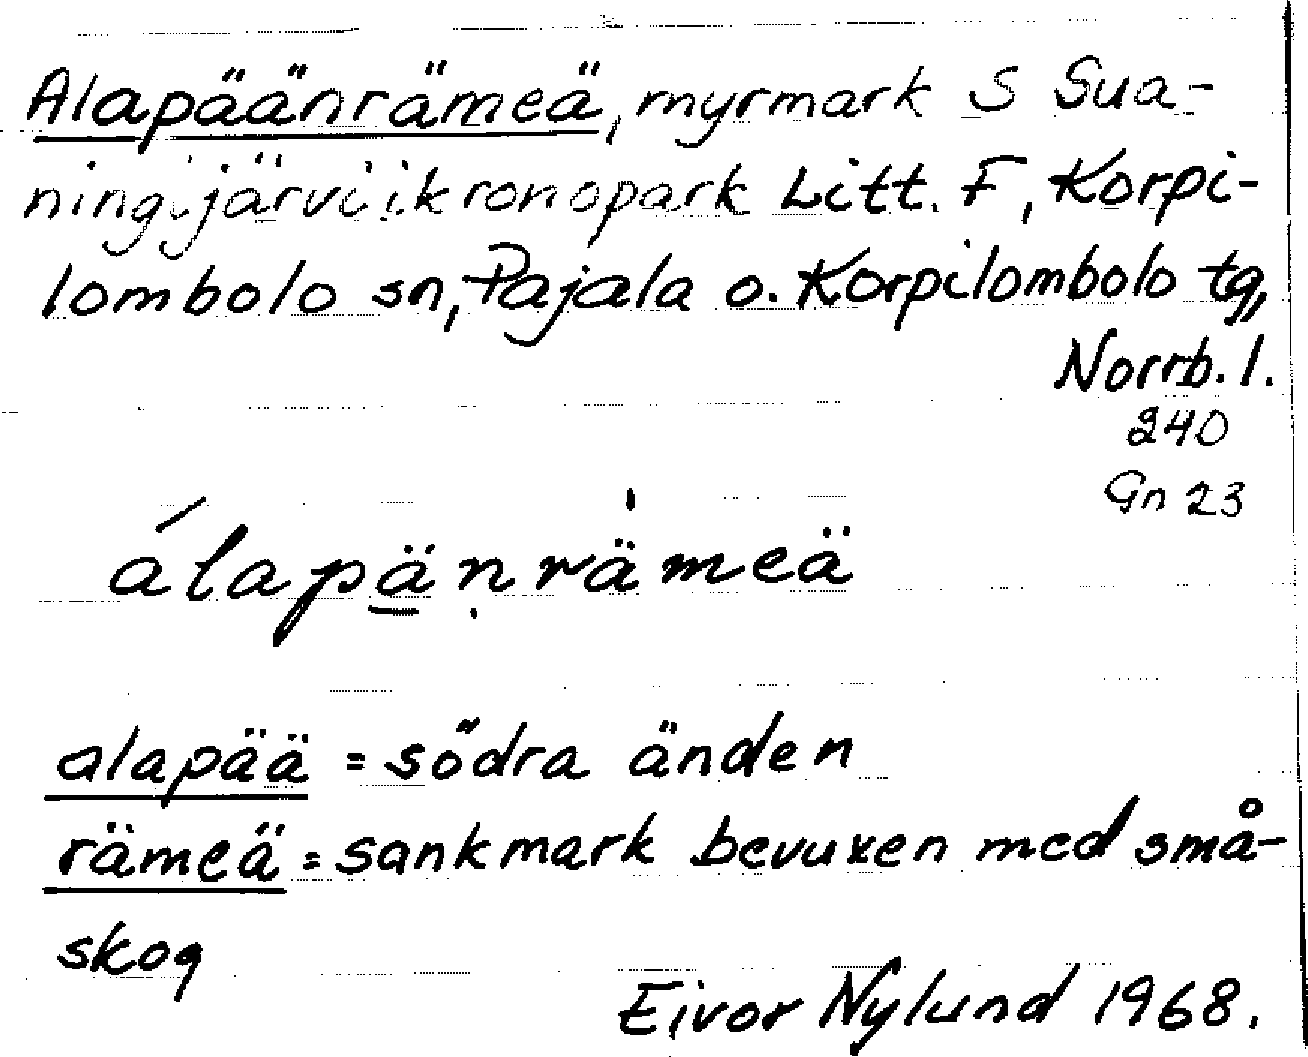 Alapäänrämeä, myrmark S Sua-
ningijärvi i kronopark Litt. F, Korpi-
lombolo sn, Pajala o. Korpilombolo tg,
Norrb. l.
240
Gn 23
álapä̱ṇrä̍meä
alapää = södra änden
rämeä = sankmark bevuxen med små-
skog
Eivor Nylund 1968.